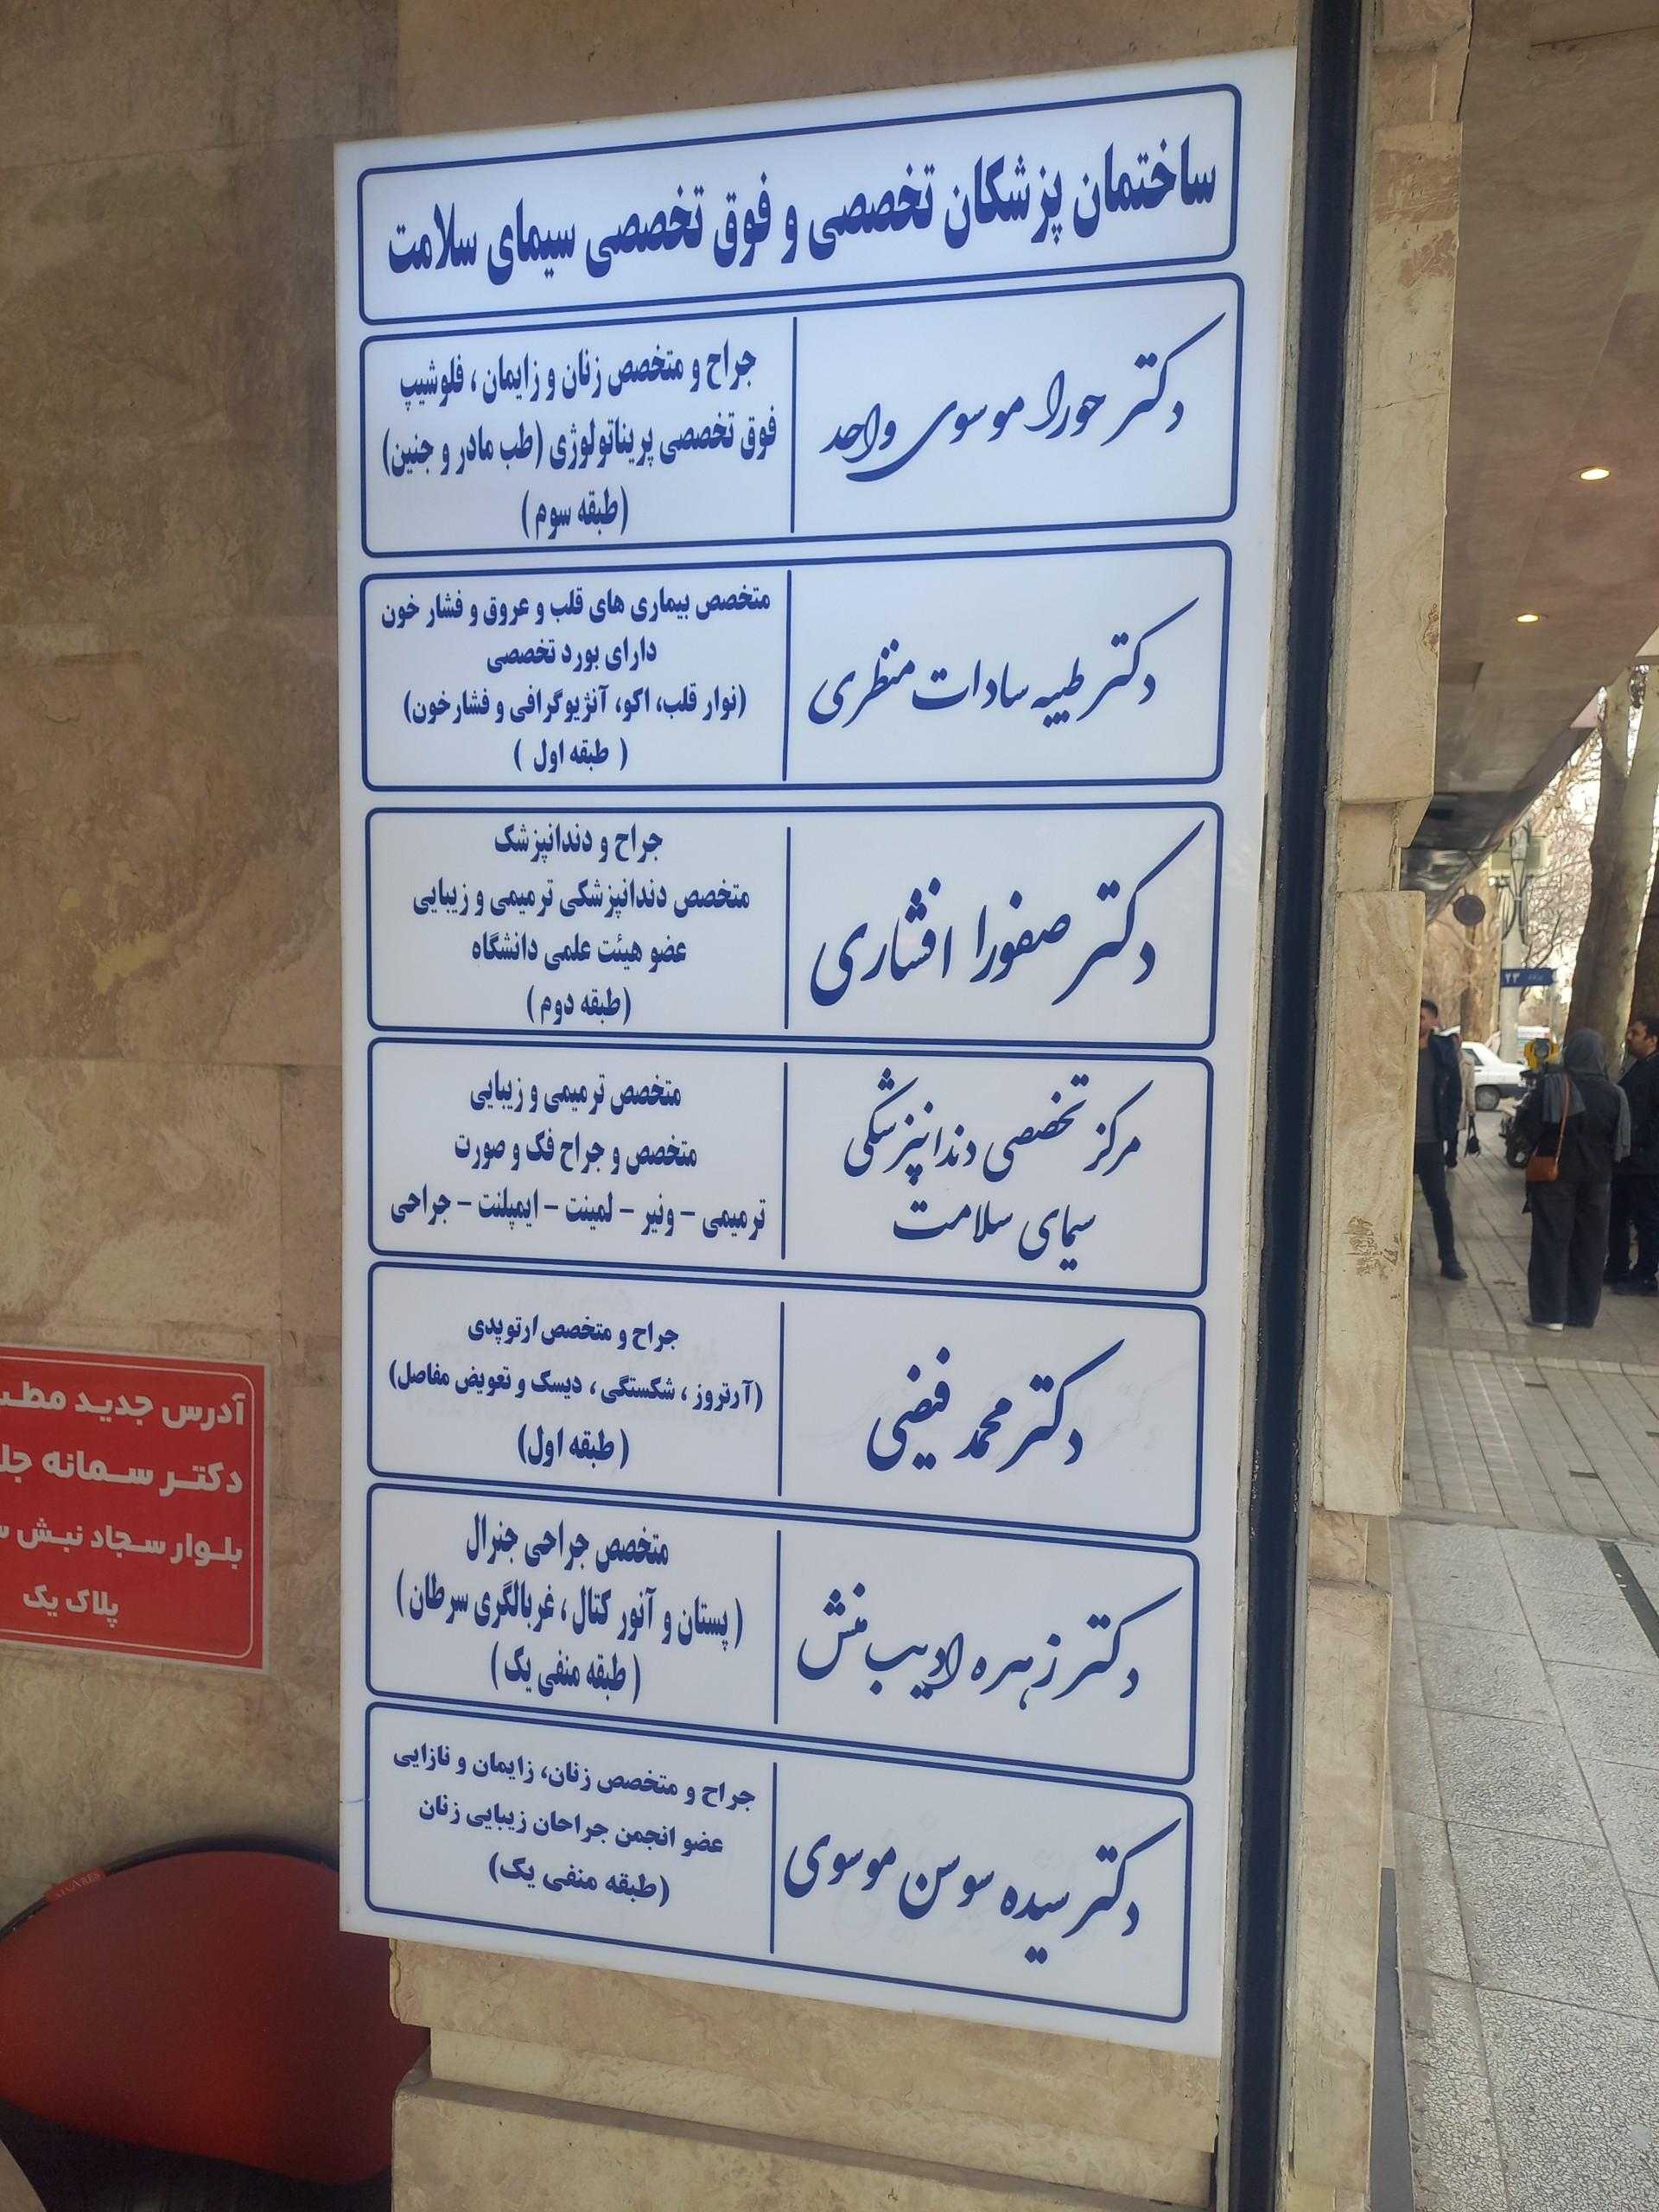 ساختمان پزشکان تخصصی و فوق تخصصی سیمای سلامت
دکتر حورا موسوی واحد
جراح و متخصص زنان و زایمان ، فلوشیپ
فوق تخصصی پریناتولوژی (طب مادر و جنین)
(طبقه سوم )
دکتر طیبه سادات منظری
متخصص بیماری های قلب و عروق و فشار خون
دارای بورد تخصصی
(نوار قلب، اکو، آنژیوگرافی و فشارخون)
( طبقه اول )
دکتر صفورا افشاری
جراح و دندانپزشک
متخصص دندانپزشکی ترمیمی و زیبایی
عضو هیئت علمی دانشگاه
(طبقه دوم )
مرکز تخصصی دندانپزشکی
سیمای سلامت
متخصص ترمیمی و زیبایی
متخصص و جراح فک و صورت
ترمیمی – ونیر – لمینت – ایمپلنت – جراحی
دکتر محمد فیضی
جراح و متخصص ارتوپدی
(آرتروز ، شکستگی ، دیسک و تعویض مفاصل)
( طبقه اول)
دکتر زهره ادیب منش
متخصص جراحی جنرال
( پستان و آنور کتال ، غربالگری سرطان )
( طبقه منفی یک )
دکتر سیده سوسن موسوی
جراح و متخصص زنان، زایمان و نازایی
عضو انجمن جراحان زیبایی زنان
(طبقه منفی یک)
آدرس جدید
دکتر سمانه
بلوار سجاد نبش
پلاک یک
۲۳